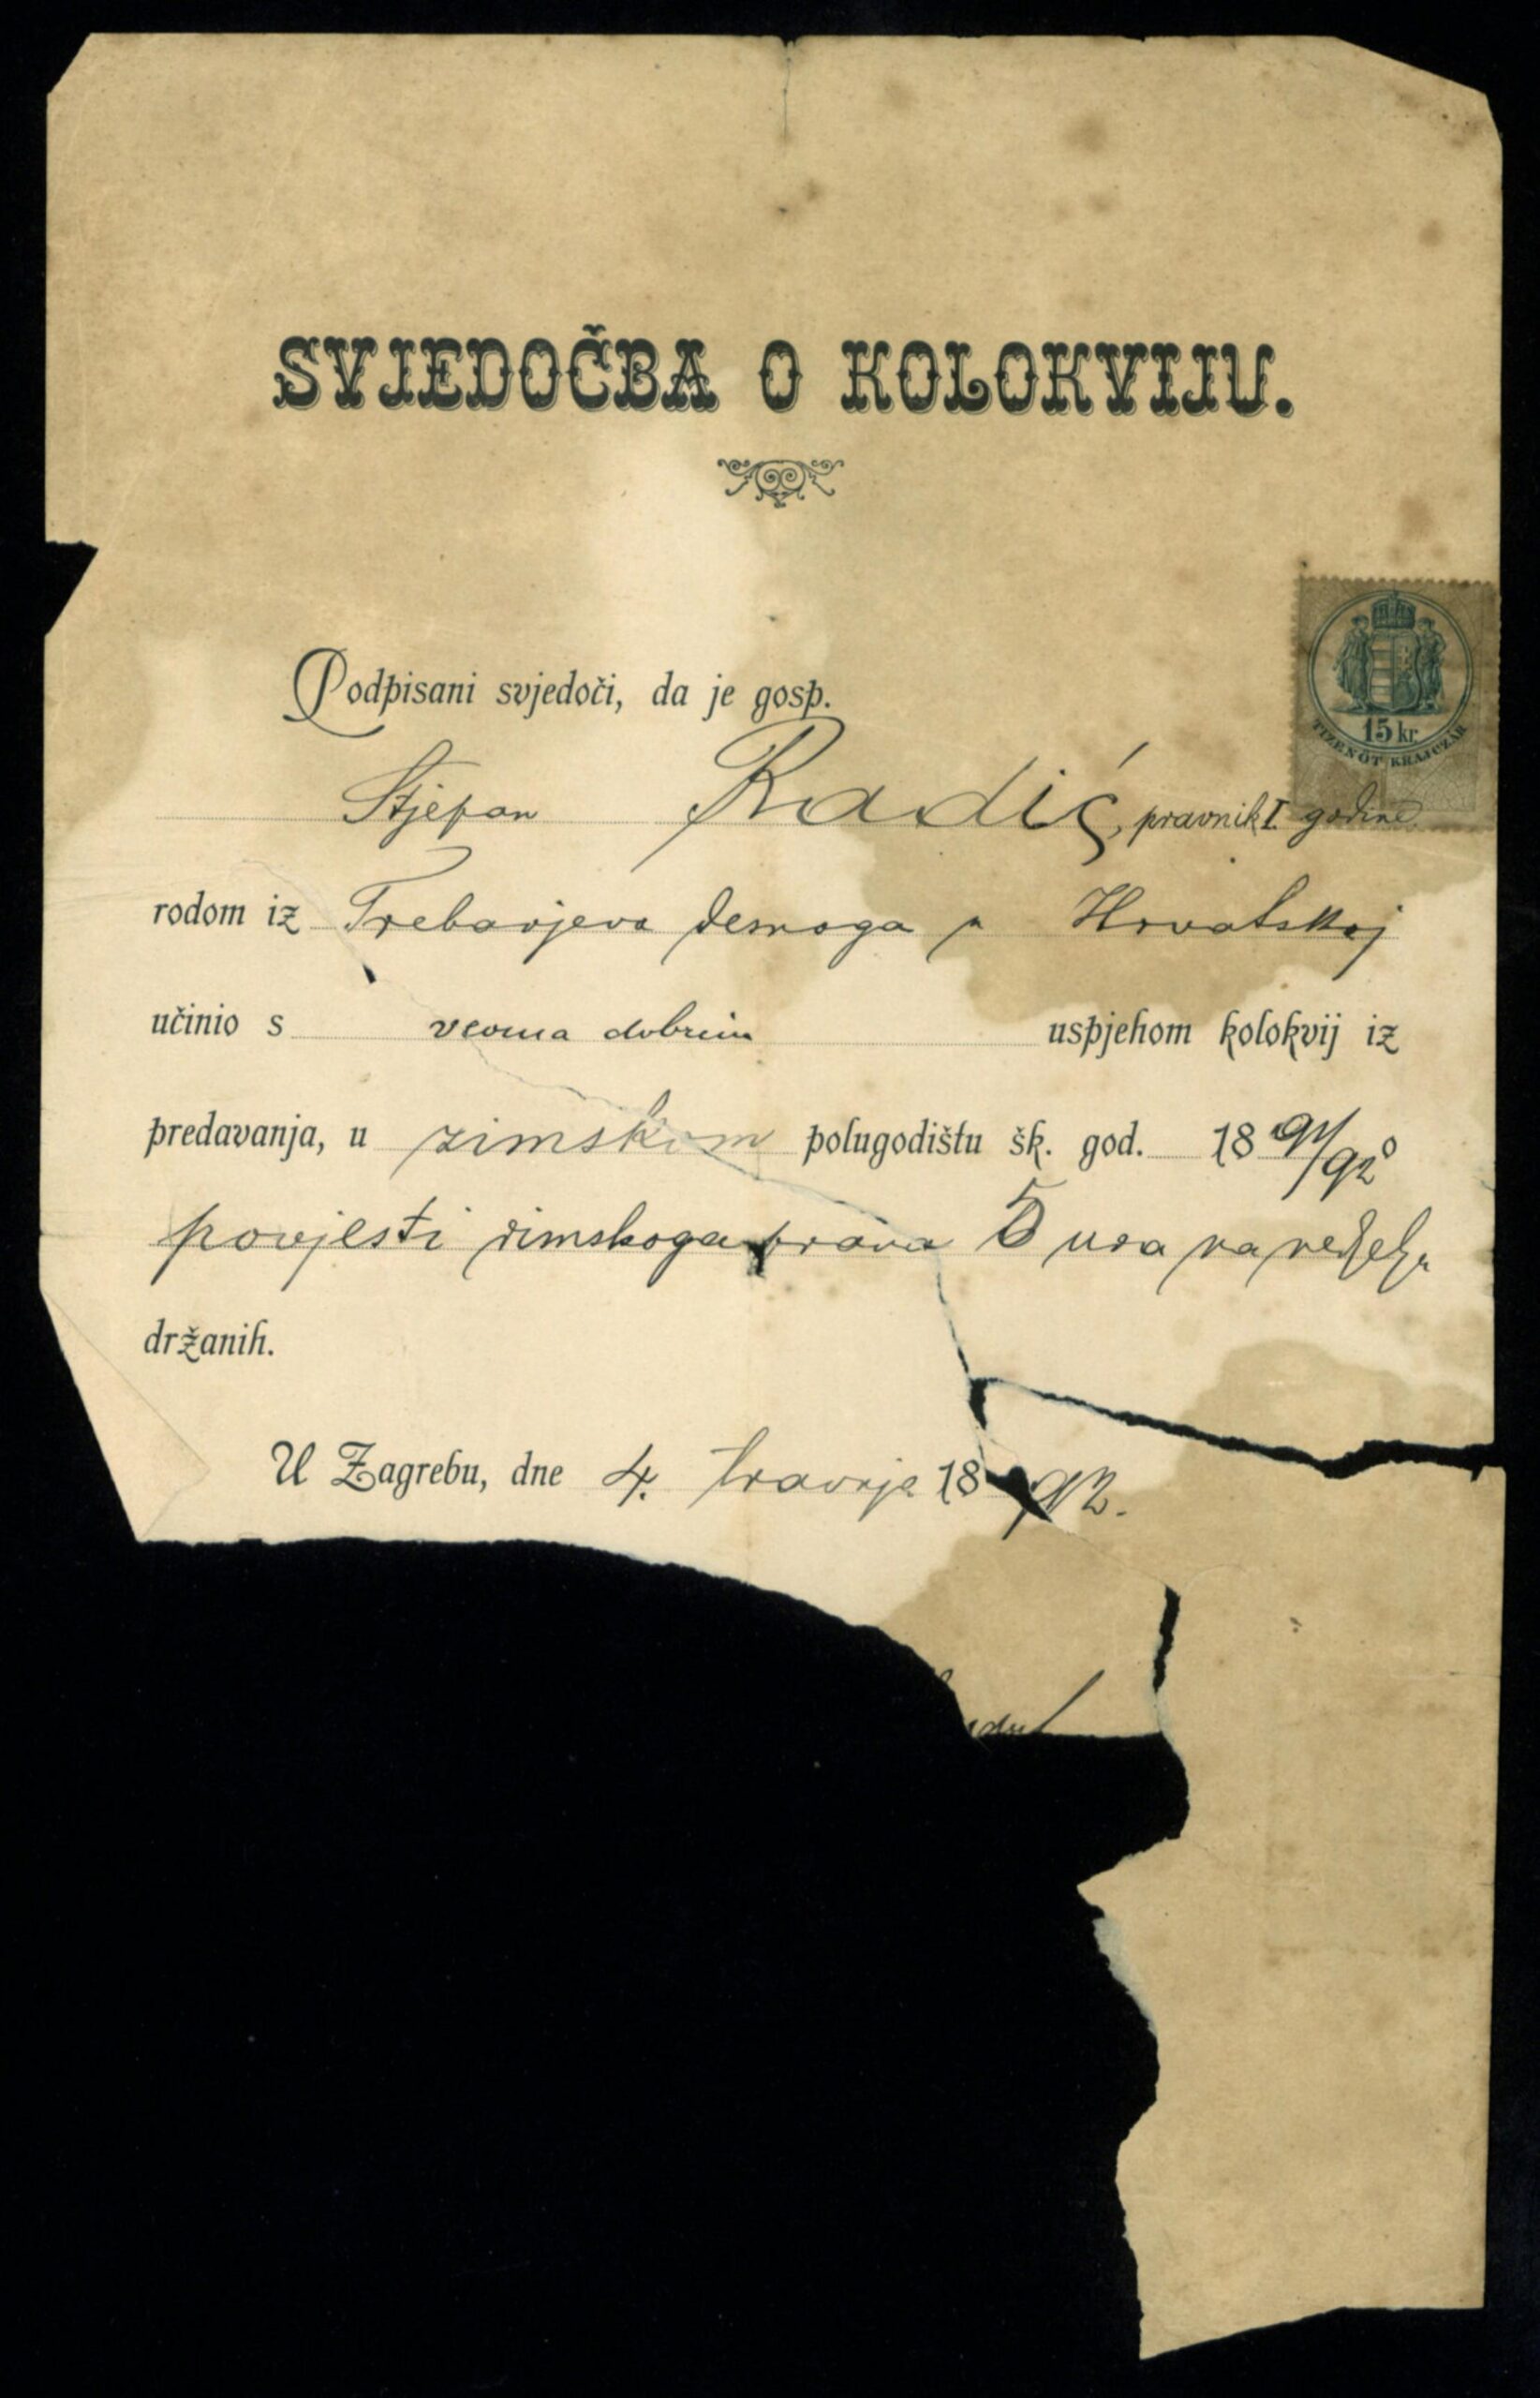 SVJEDOČBA O KOLOKVIJU.
15 kr.
TIZENÖT KRAJCZÁR
Podpisani svjedoči, da je gosp.
Stjepan Radić, pravnik I. godine
rodom iz Trebarjeva desnoga u Hrvatskoj
učinio s veoma dobrim uspjehom kolokvij iz
predavanja, u zimskom polugodištu šk. god. 1891/92 o
povjesti rimskoga prava 5 ura na nedjelju
držanih.
U Zagrebu, dne 4. travnja 1892.